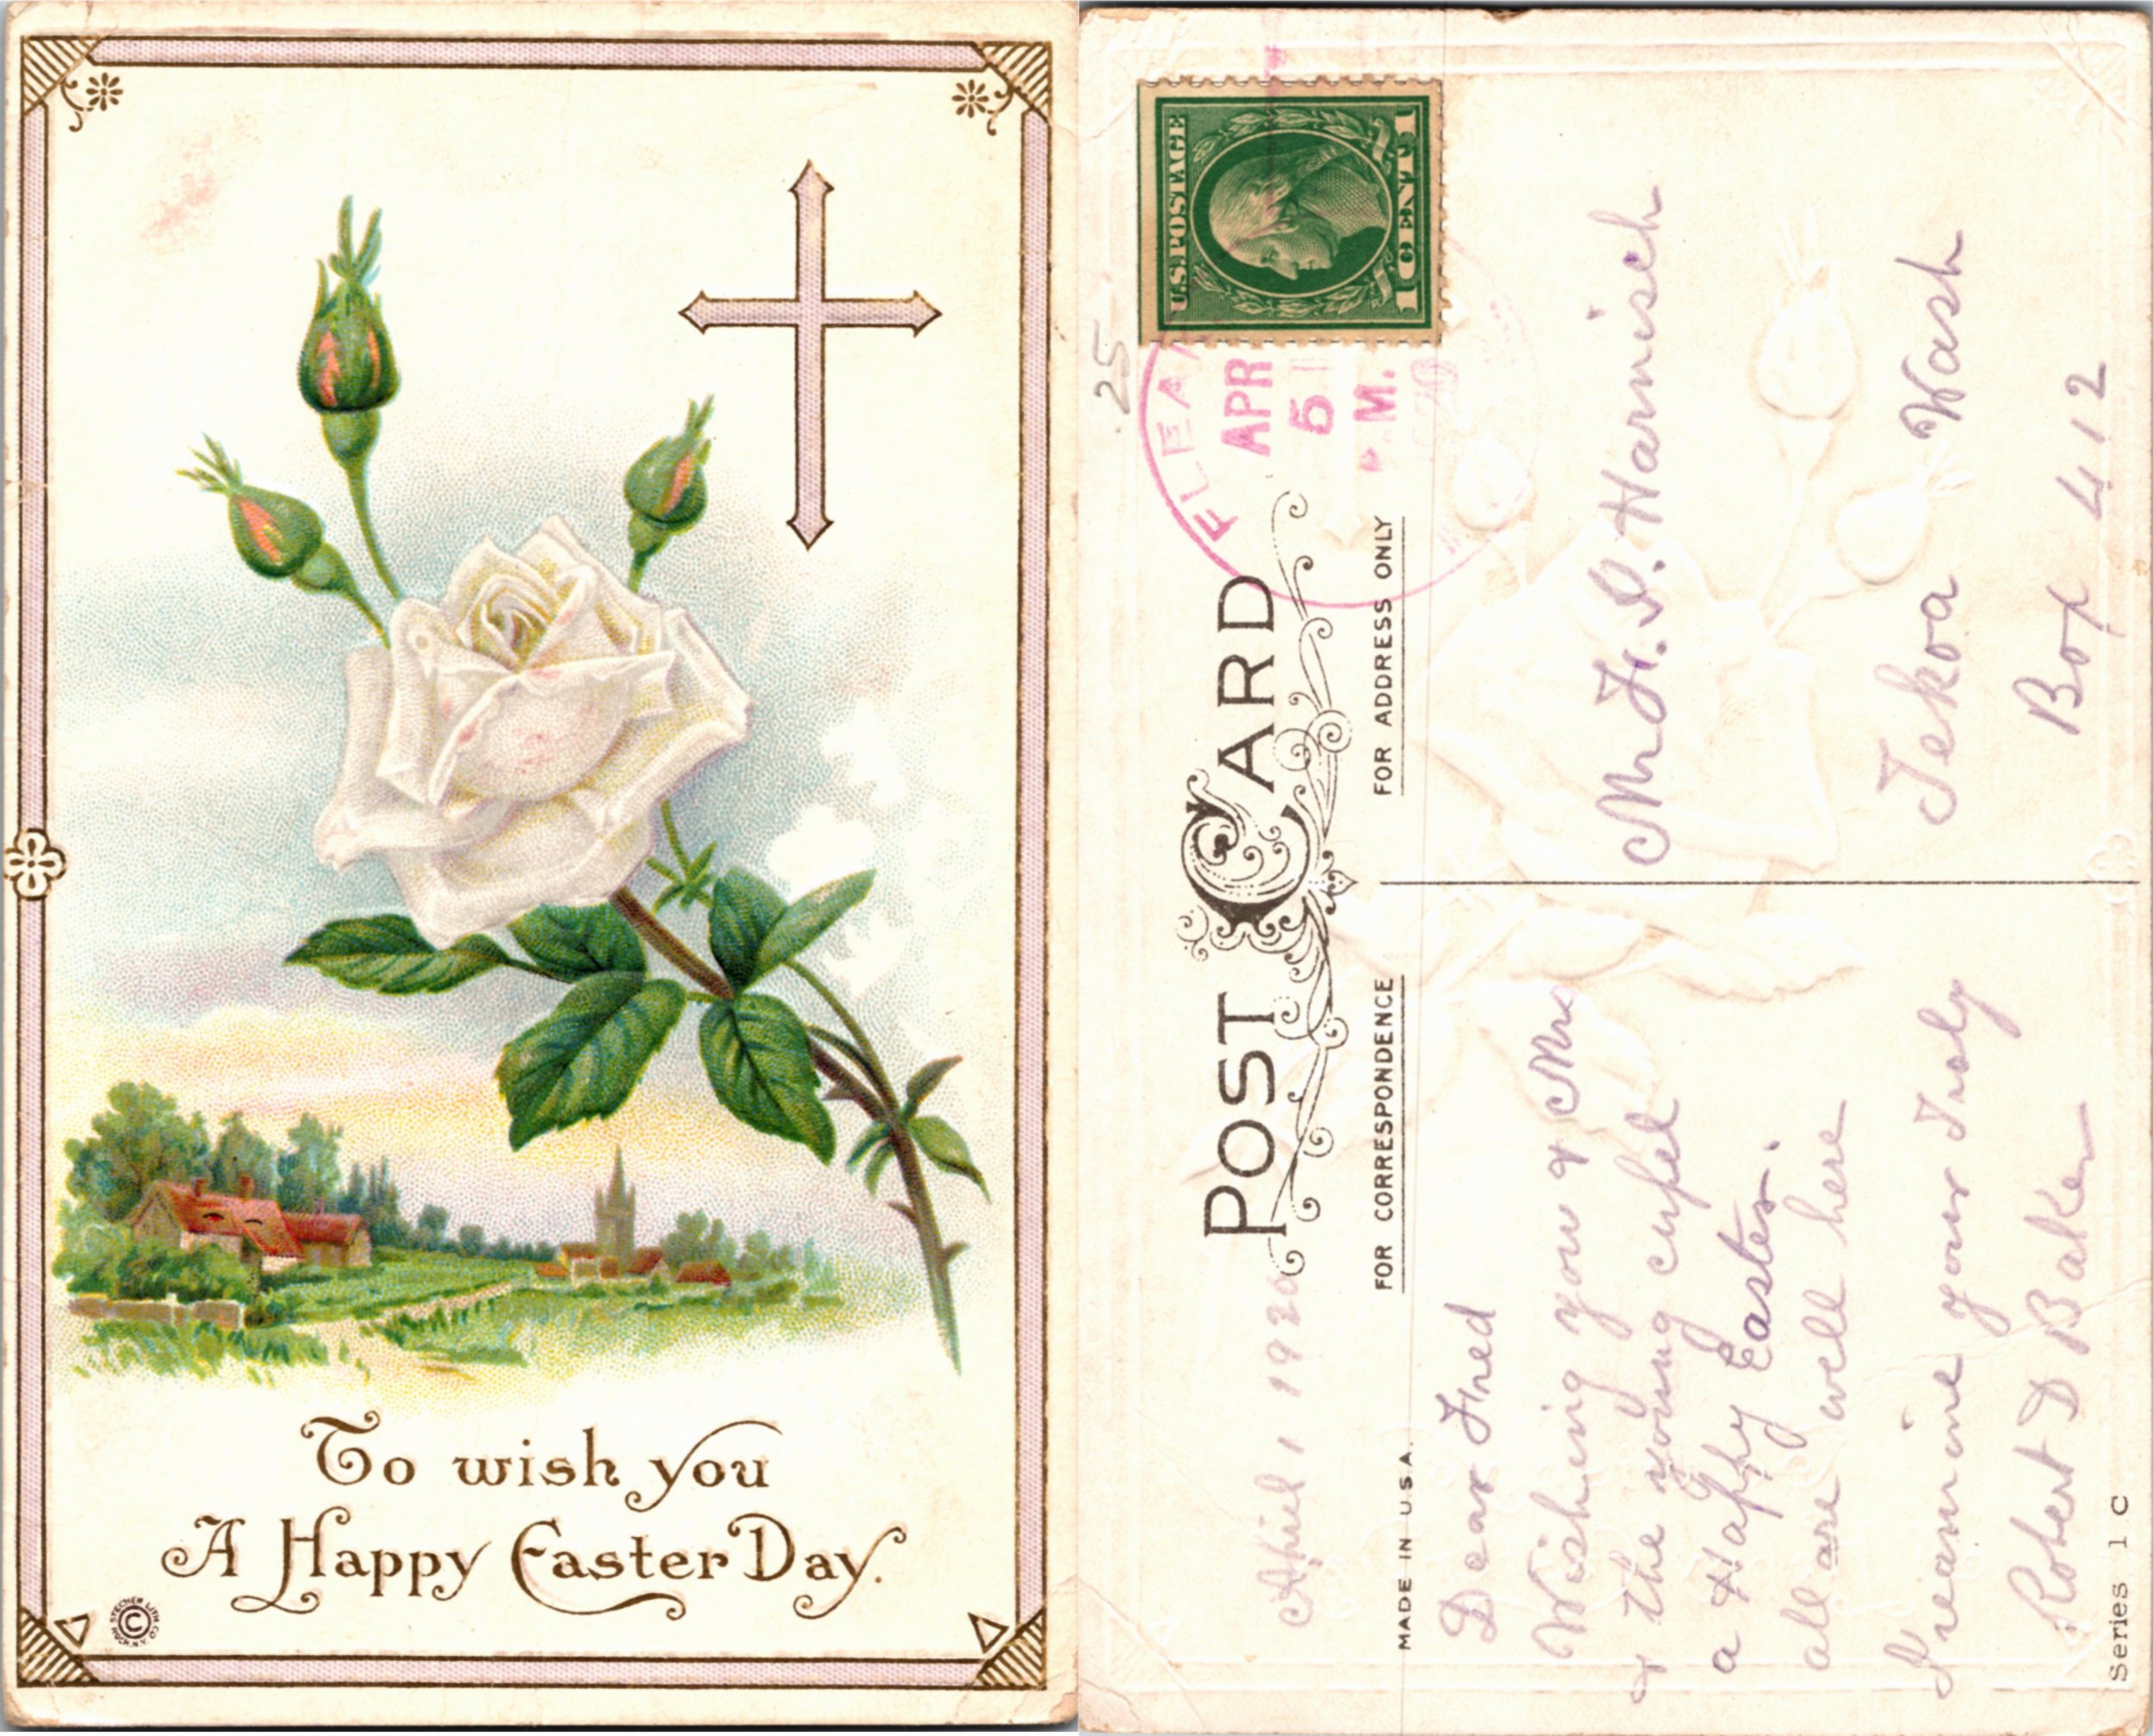 To wish you
A Happy Easter Day.
© STECHER LITH. CO.
U.S. POSTAGE
1 CENT 1
.25
APR
5
P.M.
20
POST CARD
FOR CORRESPONDENCE
FOR ADDRESS ONLY
April 1 1920
MADE IN U.S.A.
Dear Fred
Wishing you & Mrs
& the young
a Happy Easter.
all are well here
I reamine your Truly
Robert D Baker
Mr F. P. Harnisch
Tekoa Wash
Box 412
Series 1 C